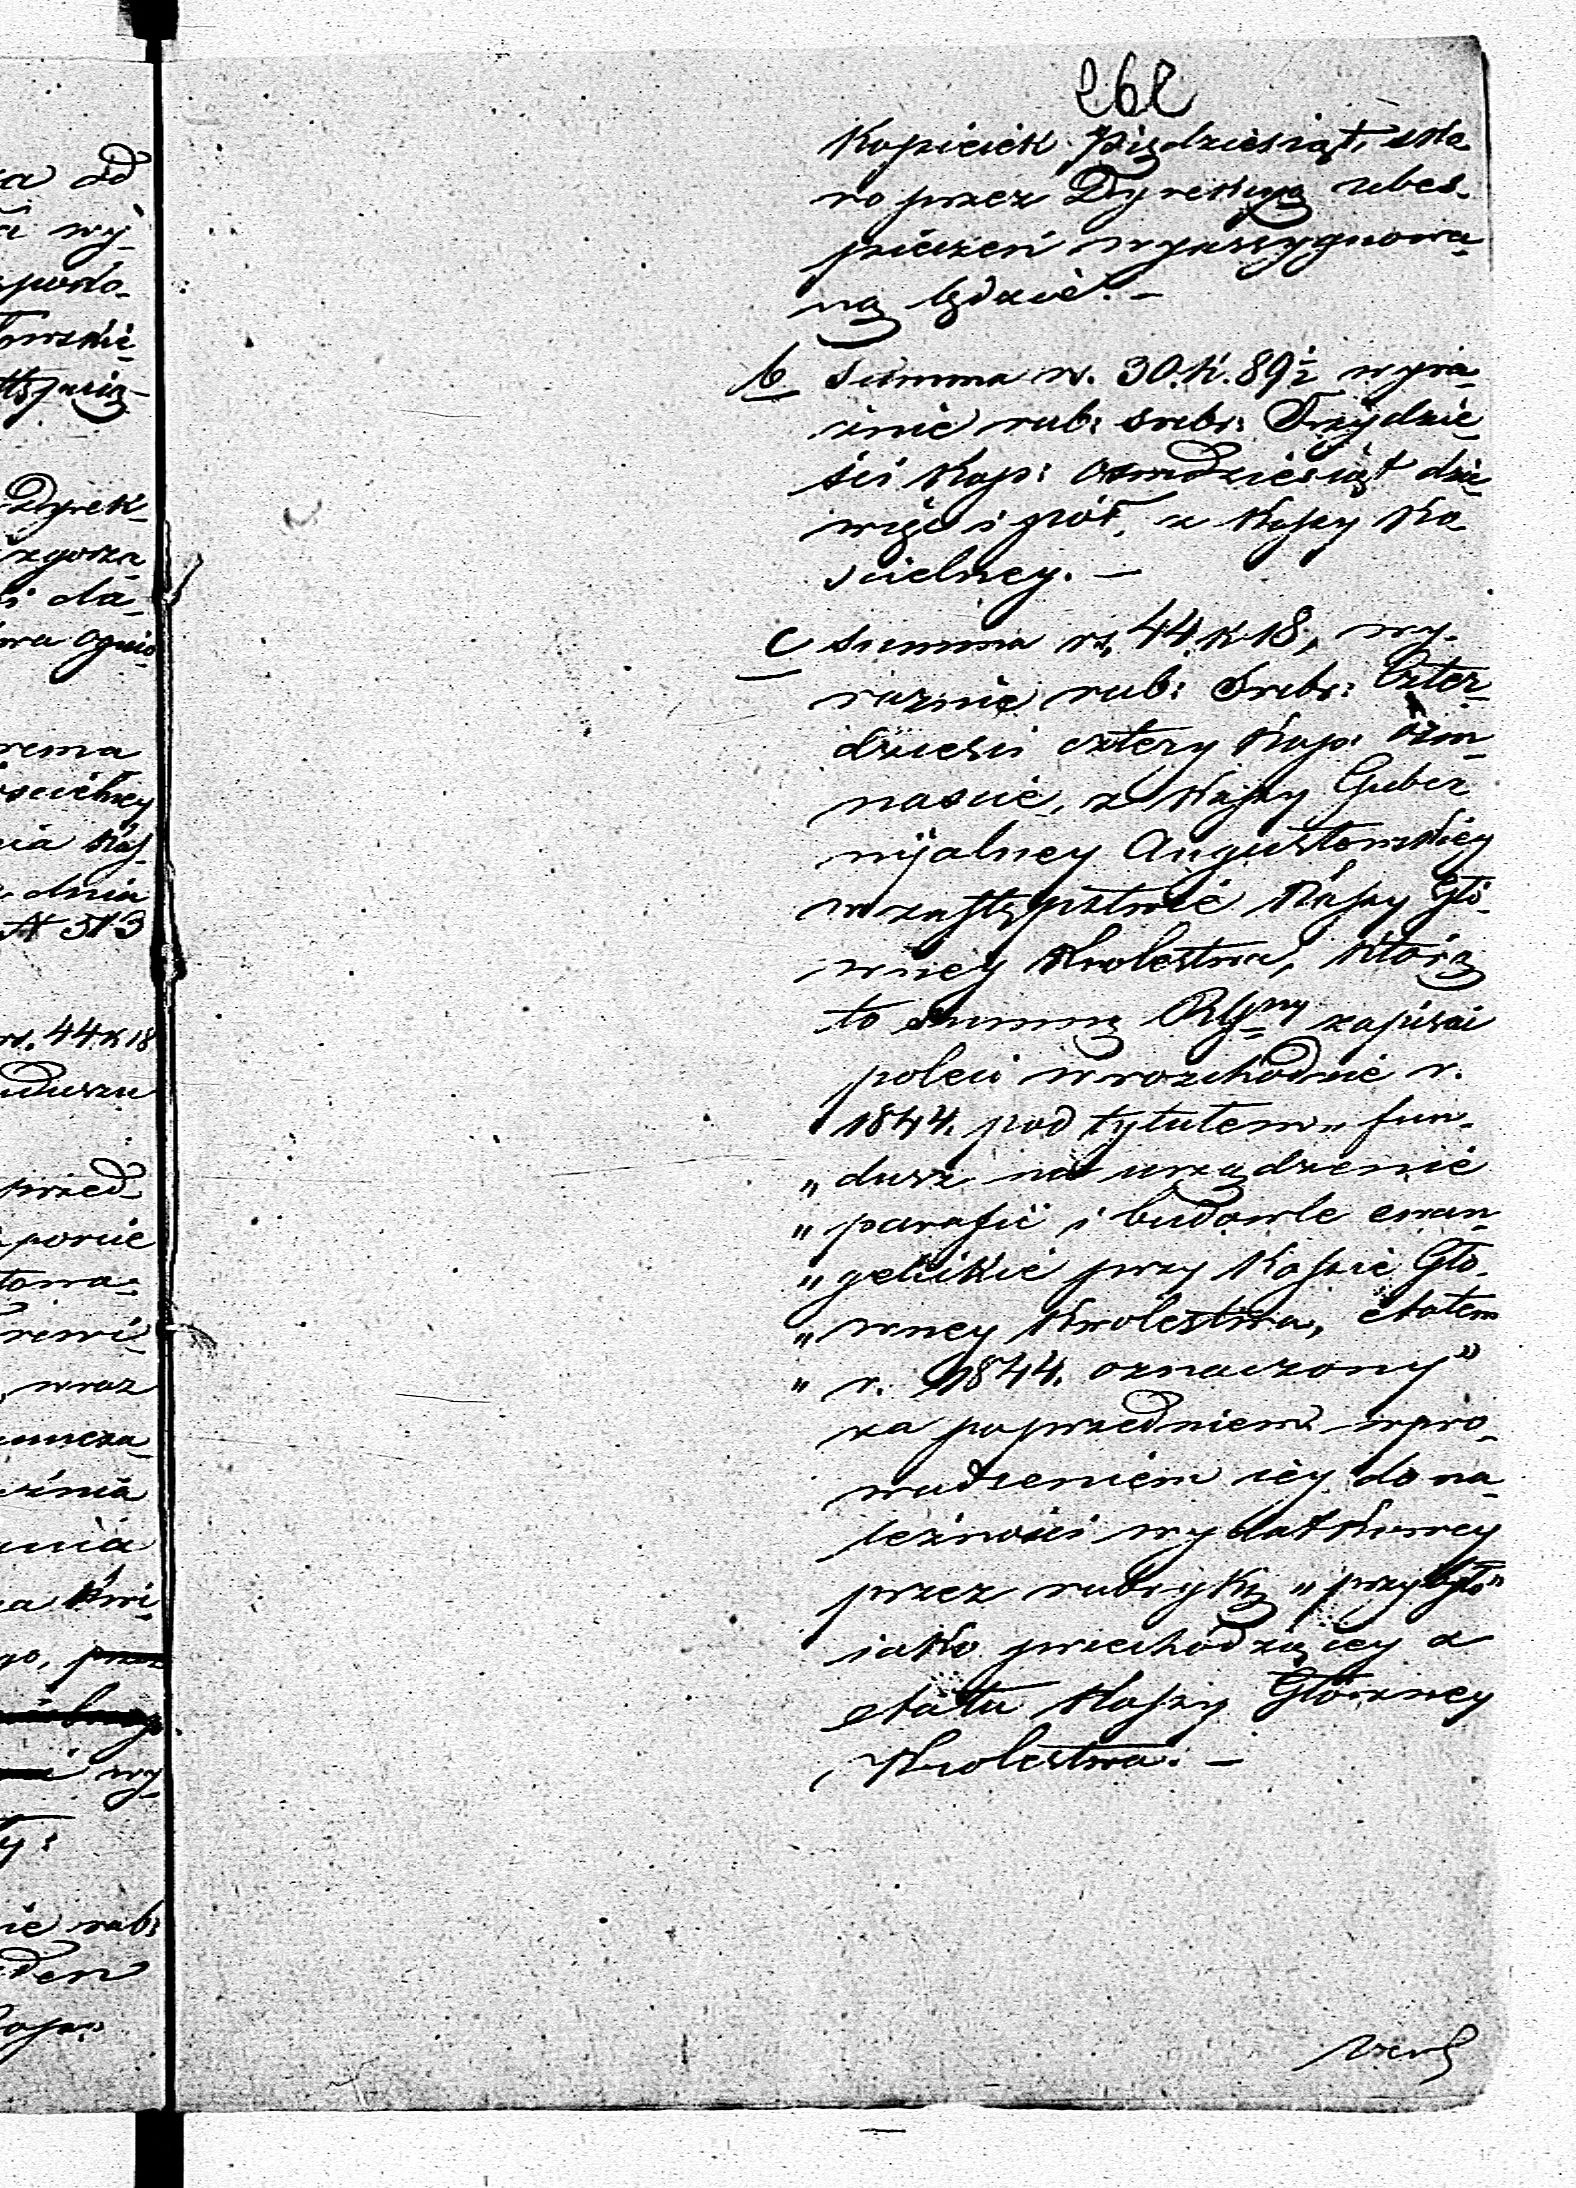 262
Kopieiek Piędziesiąt, sko-
ro przez Dyrekcyą ubes-
pieczeń wyassygnowa-
ną będzie. –
b Summa rs. 30. K. 89½ wyra-
źnie rub: srebr: Trzydzie-
ści Kop: osmdziesiąt dzie-
więc i pół, z Kassy Ko-
scielney. –
c Summa rs. 44. K 18, wy-
raznie rub: Srebr: Czter-
dziesci cztery Kop: ośm-
nascie, z Kassy Guber-
nijalney Augustowskiey
w zastępstwie Kassy Głó-
wney Krolestwa, którą
to summę zapisać
poleci w rozchodzie r.
1844. pod tytułem „ fun-
„ dusz na urządzenie
„ parafii i budowle ewan-
„ gelickie przy Kassie Głó-
„ wney Krolestwa, etatem
„ r. 1844. oznaczony”
za poprzedniem wpro-
wadzeniem iey do na-
leżności wydatkowey
przez rubrykę „ przybyło”
iako przechodzącey z
etatu Kassy Główney
Krolestwa. –